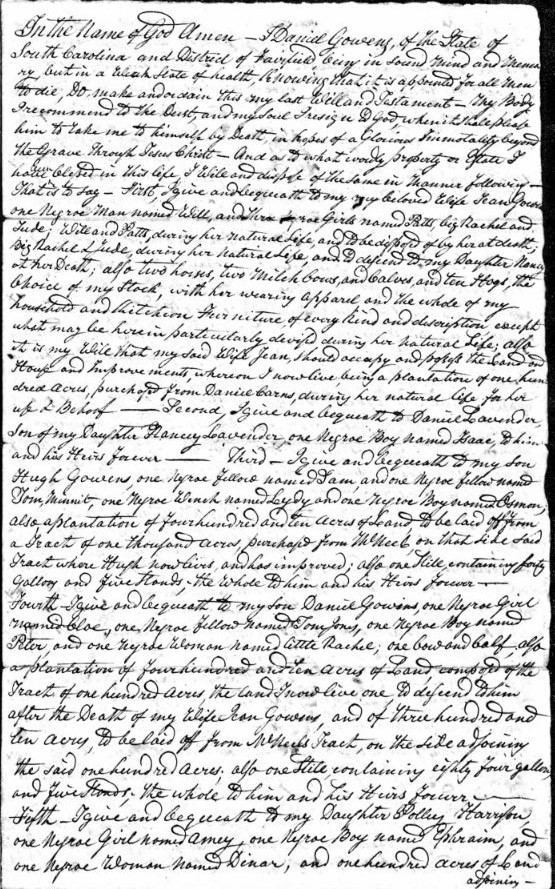 In the Name of God Amen — I Daniel Gowens, of the State of
South Carolina and District of Fairfield, being in sound Mind and Memo
ry, but in a Weak State of health Knowing that it is appointed for all Men
to die, Do, make and ordain this my last Will and Testament — My Body
I recommend to the Dust, and my Soul I resign to God when it shall please
him to take me to himself by Death, in hopes of a Glorious Immortality beyond
the Grave through Jesus Christ — And as to what worldly Property or Estate I
have blessed in this life, I Will and dispose of the same in Manner following —
That is to say — First, I give and bequeath to my beloved Wife Jean Gowens
one Negroe Man named Will, and three Negroe Girls named Patts, big Rachel and
Jude; Will and Patts, during her natural Life, and to be disposed of by her at death,
Big Rachel & Jude, during her natural Life, and to descend to my Daughter Nancy
at her Death; also two horses, two Milch Cows, and Calves, and ten Hogs, the
Choice of my Stock, with her wearing apparel and the whole of my
household and kitcheon Furniture of every kind and description except
what may be herein particularly devised during her natural Life; also
it is my Will that my said Wife Jean, should occupy and possess the Land and
House and Improvements, whereon I now live being a plantation of one hun
dred acres, purchased from Daniel Carns, during her natural life for her
use & Behoof — Second, I give and bequeath to Daniel Lavender,
Son of my Daughter Nancy Lavender, one Negroe Boy named Isaac, to him
and his Heirs Forever — Third — I give and bequeath to my son
Hugh Gowens, one Negroe Fellow named Sam, and one Negroe fellow named
Tom, Minnit, one Negroe Wench named Leydy and one Negroe Boy named Osmon,
also a plantation of four hundred and ten acres of Land to be laid off from
a Tract of one thousand acres, purchased from McNeel on that Side said
Tract where Hugh now lives, and has improved; also one Still, containing forty
gallons and Five Stands, — the Whole to him and his Heirs forever —
Fourth — I give and bequeath to my son Daniel Gowens, one Negroe Girl
named Cloe, one Negroe Fellow named Tom Jons, one Negroe Boy named
Peter, and one Negroe Woman named little Rachel, one cow and calf also
a plantation of four hundred and ten acres of Land composed of the
Tract of one hundred acres the land I now live one to descend to him
after the Death of my Wife Jean Gowens, and of three hundred and
ten acres, to be laid off from McNeels Tract, on the side adjoining
the said one hundred acres. also one Still containing eighty four gallons
and five Stands. — the whole to him and his Heirs forever —
Fifth — I give and bequeath to my Daughter Polley Harrison,
one Negroe Girl named Amey, one Negroe Boy named Ephraim, and
one Negroe Woman named Dinar, and one hundred acres of Land
adjoining —